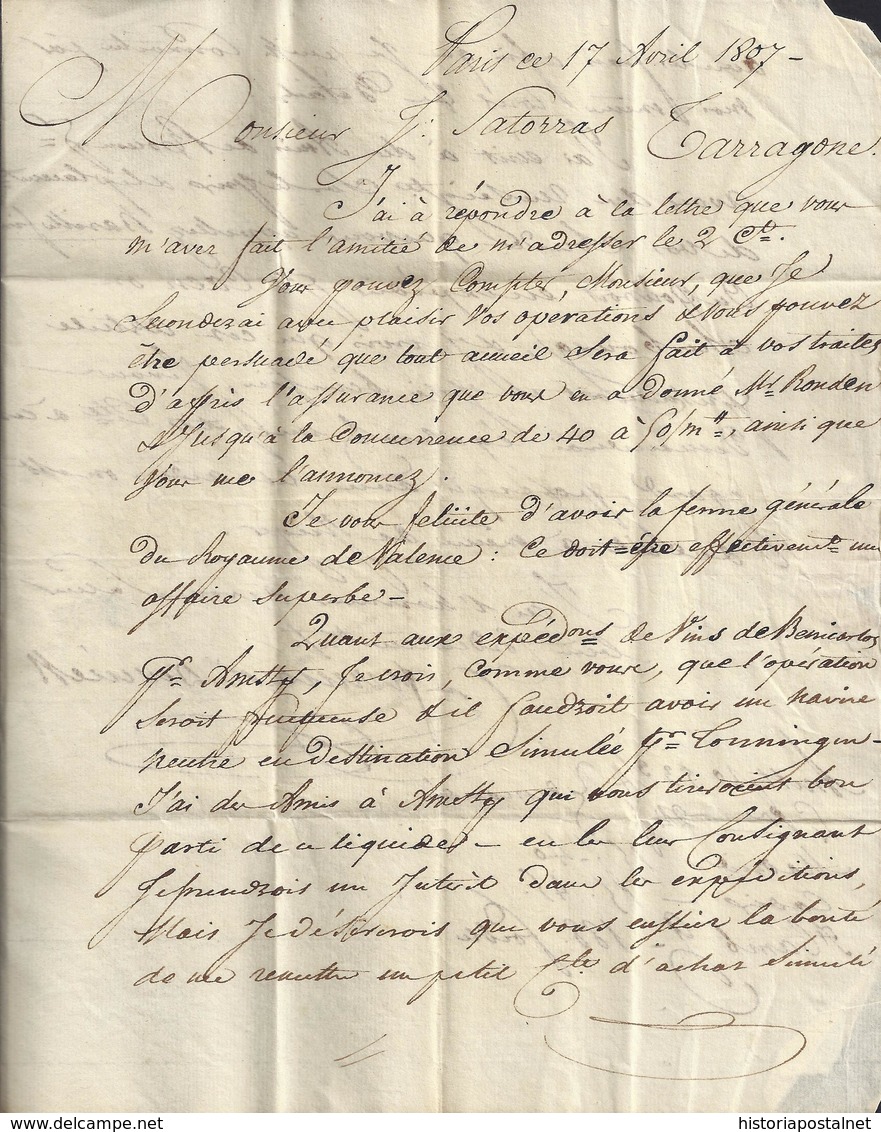 Paris ce 17 Avril 1807 -
Monsieur J. Satorras Tarragone.
J'ai à répondre à la lettre que vous
m'avez fait l'amitié de m'adresser le 2 Ct.
Vous pouvez Compter, Monsieur, que Je
Seconderai avec plaisir Vos operations & Vous pouvez
être persuadé que tout acueil Sera fait à vos traites
d'apris l'assurance que vous en a donné Mr. Ronden
& Jusqu'à la Concurrence de 40 à 50/m#, ainsi que
Vous me l'annoncez.
Je vous felicite d'avoir la ferme générale
du Royaume de Valence : Ce doit-être effectivemt. une
affaire Superbe -
Quant aux expédons de Vins de Benicarlos
Pr. Amstg, Je crois, Comme vous, que l'opération
Seroit fructueuse & il faudroit avoir un navire
neutre en destination Simulée Pr. Tonningen -
J'ai des Amis à Amstg qui vous tireroient bon
parti de ce liquide - en les leur Consignant
Je prendrois un Interêt dans les expéditions,
Mais Je désirerois que vous eussiez la bonté
de me remettre un petit Cte. d'achat Simulé
historiapostalnet
historiapostalnet